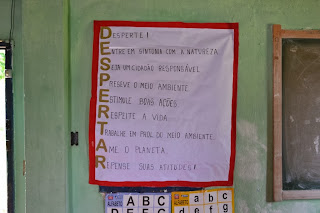 DESPERTE!
ENTRE EM SINTONIA COM A NATUREZA.
SEJA UM CIDADÃO RESPONSÁVEL
PRESERVE O MEIO AMBIENTE
ESTIMULE BOAS AÇÕES
RESPEITE A VIDA.
TRABALHE EM PROL DO MEIO AMBIENTE.
AME O PLANETA.
REPENSE SUAS ATITUDES!
ALFABETO
A B C
a b c